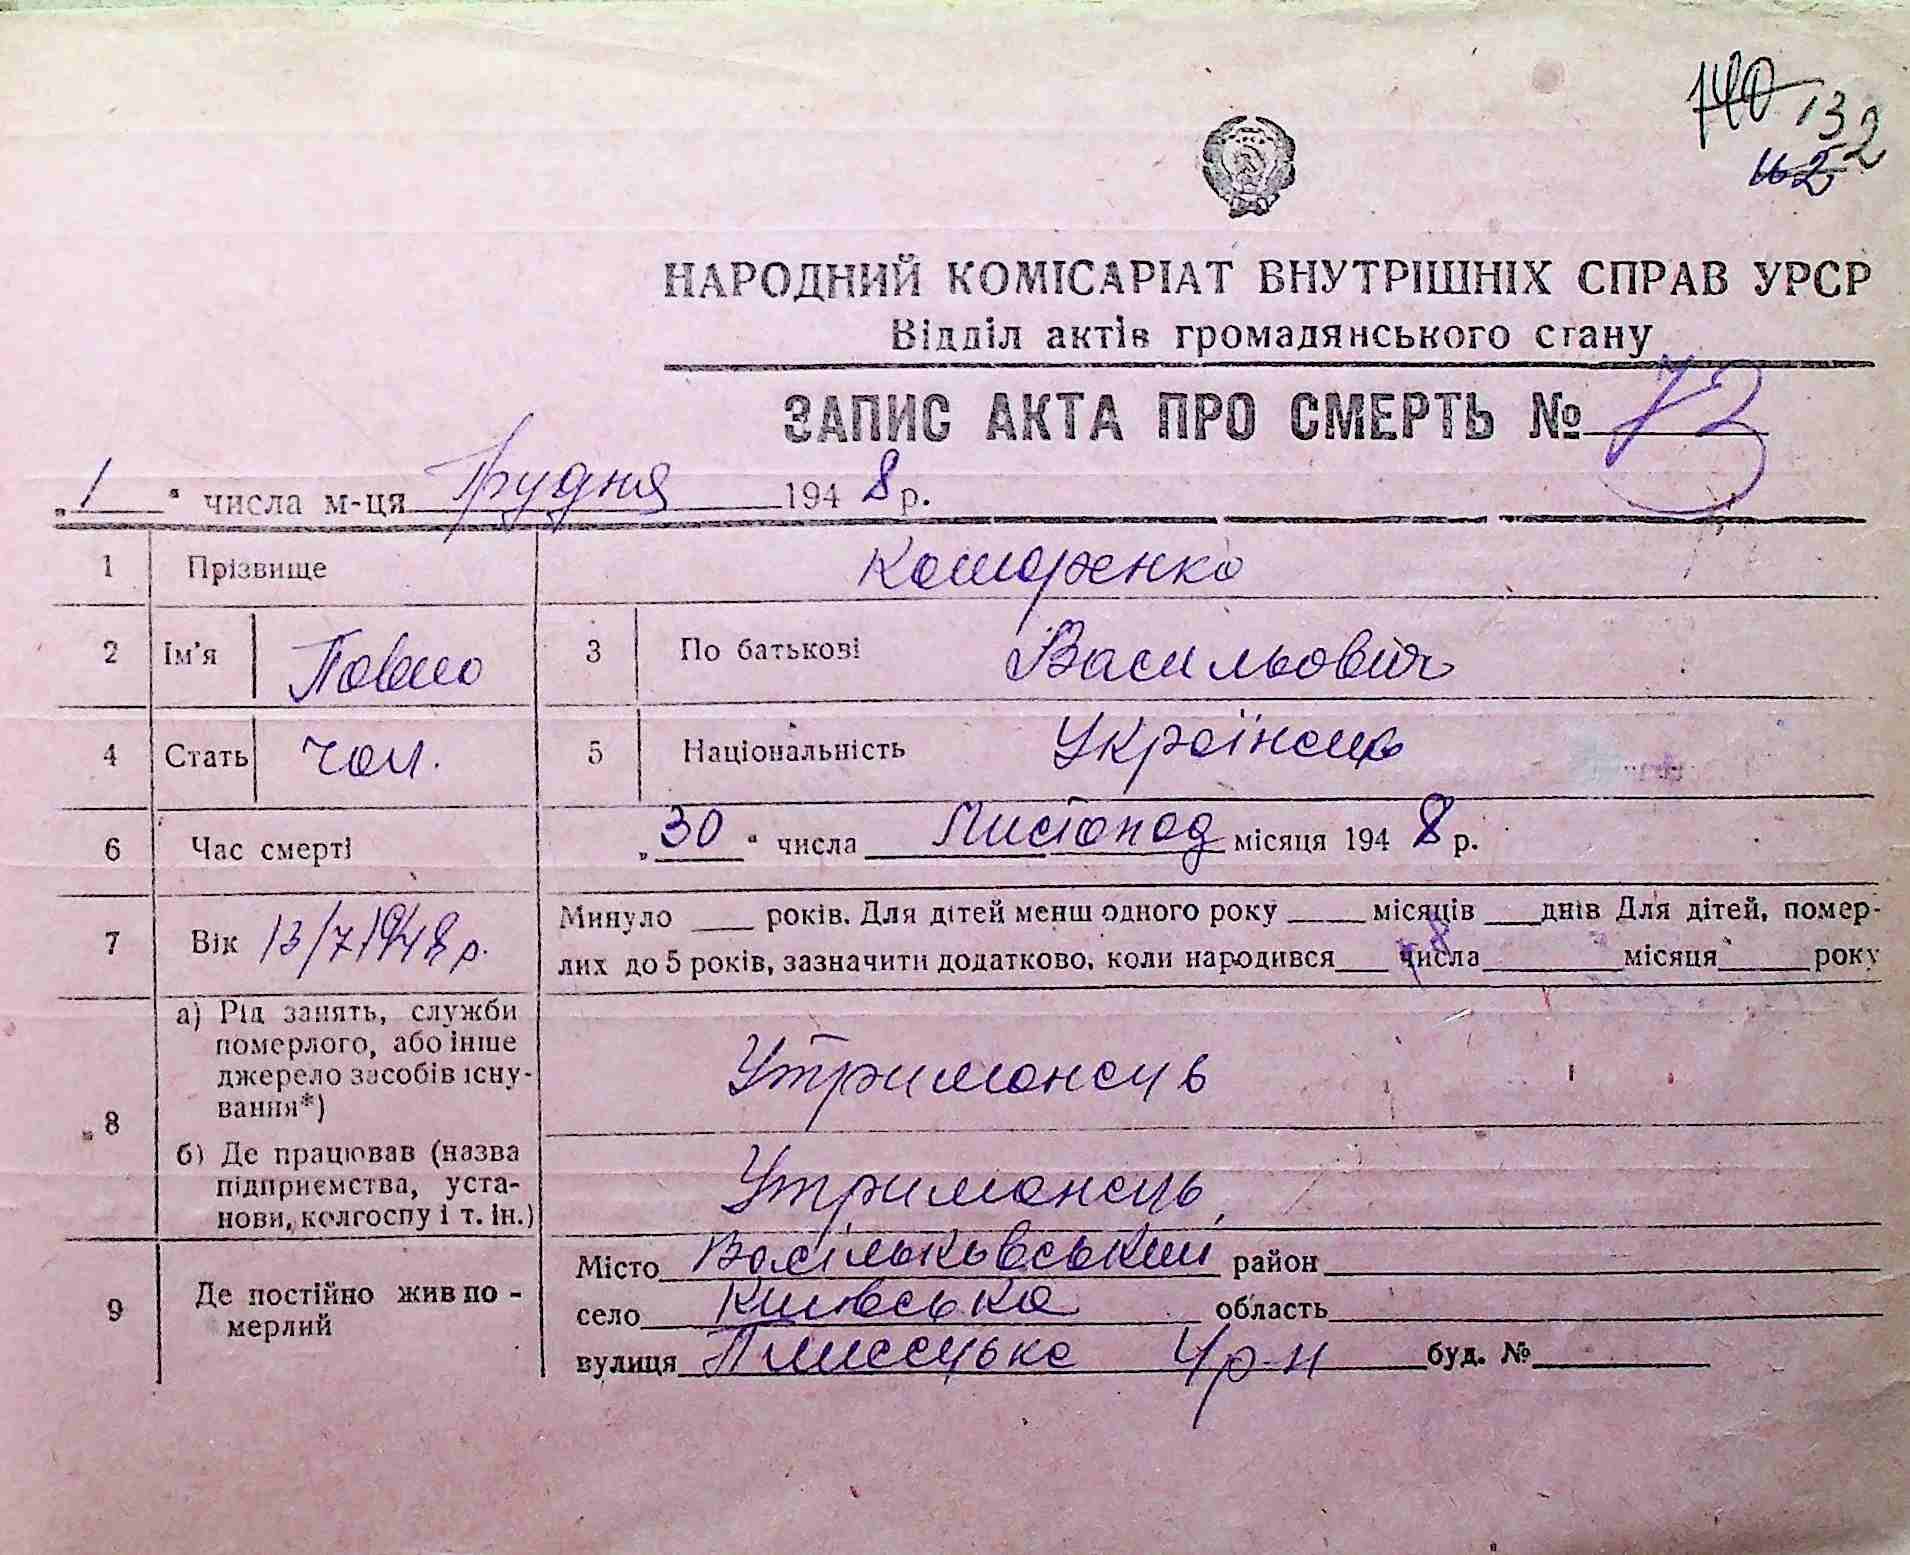 140 132
НАРОДНИЙ КОМІСАРІАТ ВНУТРІШНІХ СПРАВ УРСР
Відділ актів громадянського стану
ЗАПИС АКТА ПРО СМЕРТЬ № 73
„1“ числа м-ця Грудня 1948 р.
1 Прізвище Комаренко
2 Ім'я Павло 3 По батькові Васильович
4 Стать чол. 5 Національність Українець
6 Час смерті „30“ числа Листопад місяця 1948 р.
7 Вік 13/7 1948 р. Минуло ___ років. Для дітей менш одного року ___ місяців ___ днів Для дітей, помер-
лих до 5 років, зазначити додатково, коли народився ___ числа ___ місяця ___ року
8 а) Рід занять, служби
померлого, або інше
джерело засобів існу-
вання*) Утриманець
б) Де працював (назва
підприємства, уста-
нови, колгоспу і т. ін.) Утриманець
9 Де постійно жив по-
мерлий
Місто Васільковський район
село Київська область
вулиця буд. №